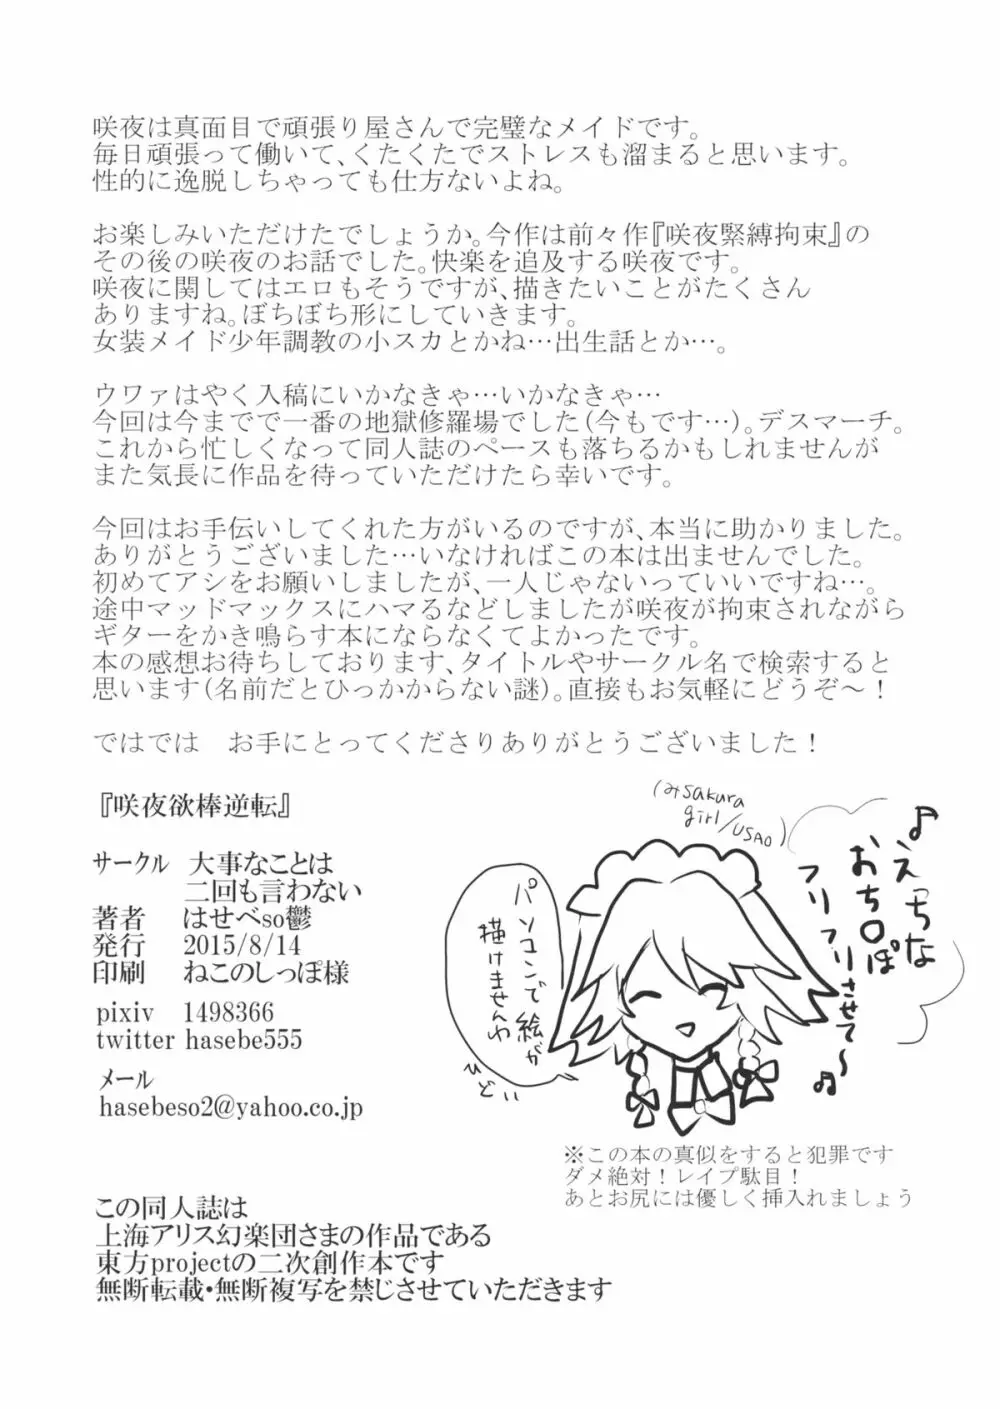 咲夜は真面目で頑張り屋さんで完璧なメイドです。
毎日頑張って働いて、くたくたでストレスも溜まると思います。
性的に逸脱しちゃっても仕方ないよね。
お楽しみいただけたでしょうか。今作は前々作『咲夜緊縛拘束』の
その後の咲夜のお話でした。快楽を追及する咲夜です。
咲夜に関してはエロもそうですが、描きたいことがたくさん
ありますね。ぼちぼち形にしていきます。
女装メイド少年調教の小スカとかね…出生話とか…。
ウワァはやく入稿にいかなきゃ…いかなきゃ…
今回は今までで一番の地獄修羅場でした(今もです…)。デスマーチ。
これから忙しくなって同人誌のペースも落ちるかもしれませんが
また気長に作品を待っていただけたら幸いです。
今回はお手伝いしてくれた方がいるのですが、本当に助かりました。
ありがとうございました…いなければこの本は出ませんでした。
初めてアシをお願いしましたが、一人じゃないっていいですね…。
途中マッドマックスにハマるなどしましたが咲夜が拘束されながら
ギターをかき鳴らす本にならなくてよかったです。
本の感想お待ちしております、タイトルやサークル名で検索すると
思います(名前だとひっかからない謎)。直接もお気軽にどうぞ～！
ではでは　お手にとってくださりありがとうございました！
『咲夜欲棒逆転』
サークル　大事なことは
二回も言わない
著者　はせべso鬱
発行　2015/8/14
印刷　ねこのしっぽ様
pixiv　1498366
twitter hasebe555
メール
hasebeso2@yahoo.co.jp
(みsakura
girl/USAO)
♪えっちな
おち〇ぽ
フリフリさせて～♫
パソコンで
絵が
描けませんわ
ひどい
※この本の真似をすると犯罪です
ダメ絶対！レイプ駄目！
あとお尻には優しく挿入れましょう
この同人誌は
上海アリス幻楽団さまの作品である
東方projectの二次創作本です
無断転載・無断複写を禁じさせていただきます